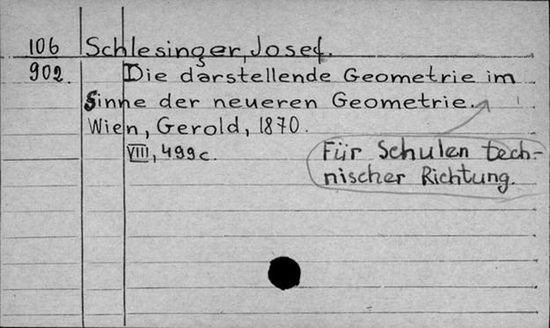 106 Schlesinger, Josef.
902. Die darstellende Geometrie im
Sinne der neueren Geometrie.
Wien, Gerold, 1870.
VIII, 499 c.
Für Schulen tech-
nischer Richtung.